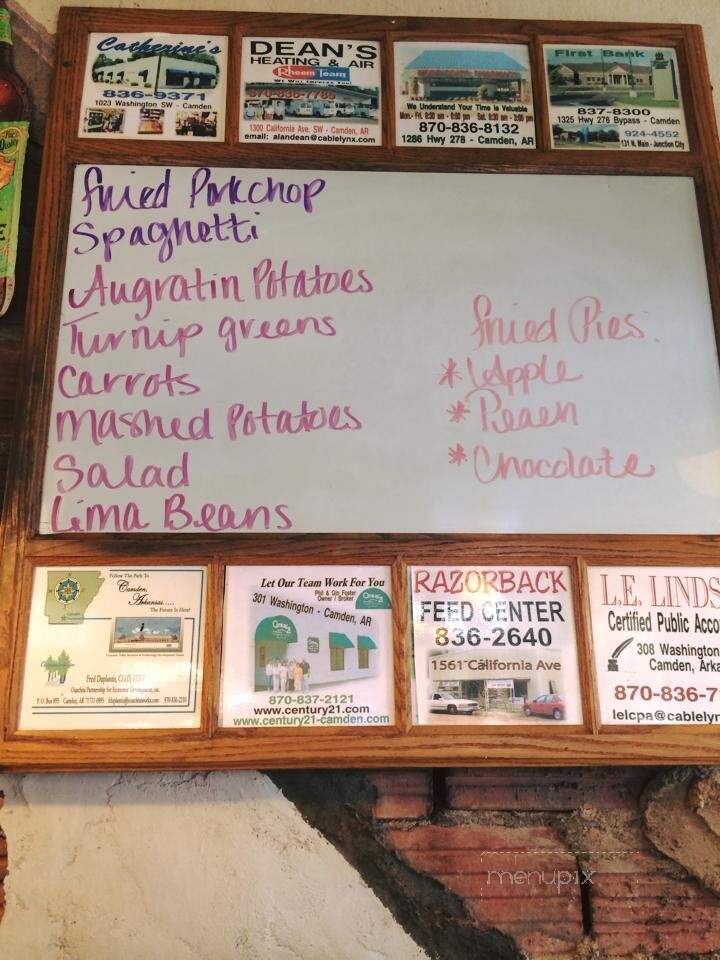 Catherine's
836-9371
1023 Washington SW - Camden
DEAN'S
HEATING & AIR
Rheem Team
870-836-7785
1300 California Ave. SW - Camden, AR
email: alandean@cablelynx.com
We Understand Your Time is Valuable
870-836-8132
1286 Hwy 278 - Camden, AR
First Bank
837-8300
1325 Hwy 278 Bypass - Camden
924-4552
131 N. Main - Junction City
Fried Porkchop
Spaghetti
Augratin Potatoes
Turnip greens
Carrots
Mashed Potatoes
Salad
Lima Beans
Fried Pies
* Apple
* Peach
* Chocolate
Follow The Path To
Camden,
Arkansas.....
The Future Is Here!
Let Our Team Work For You
Phil & Gin Foster
Owner / Broker
301 Washington - Camden, AR
870-837-2121
www.century21.com
www.century21-camden.com
RAZORBACK
FEED CENTER
836-2640
1561 California Ave
L.E. LINDS
Certified Public Acco
308 Washington
Camden, Arka
870-836-7
lelcpa@cablelyn
menupix